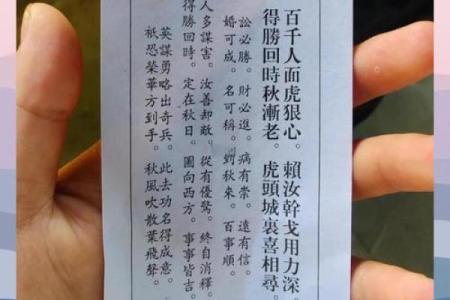 百千人面虎狠心。賴汝幹戈用力深。
得勝回時秋漸老。虎頭城裏喜相尋。
訟必勝。財必進。病有崇。遠有信。
婚可成。名可稱。到秋來。百事順。
人多謀害。汝善却敵。從有優驚。終自消釋。
得勝回時。定在秋日。圖向西方。事事皆吉。
英謀勇略出奇兵。此去功名得成意。
祇恐榮華方到手。秋風吹散葉飛聲。